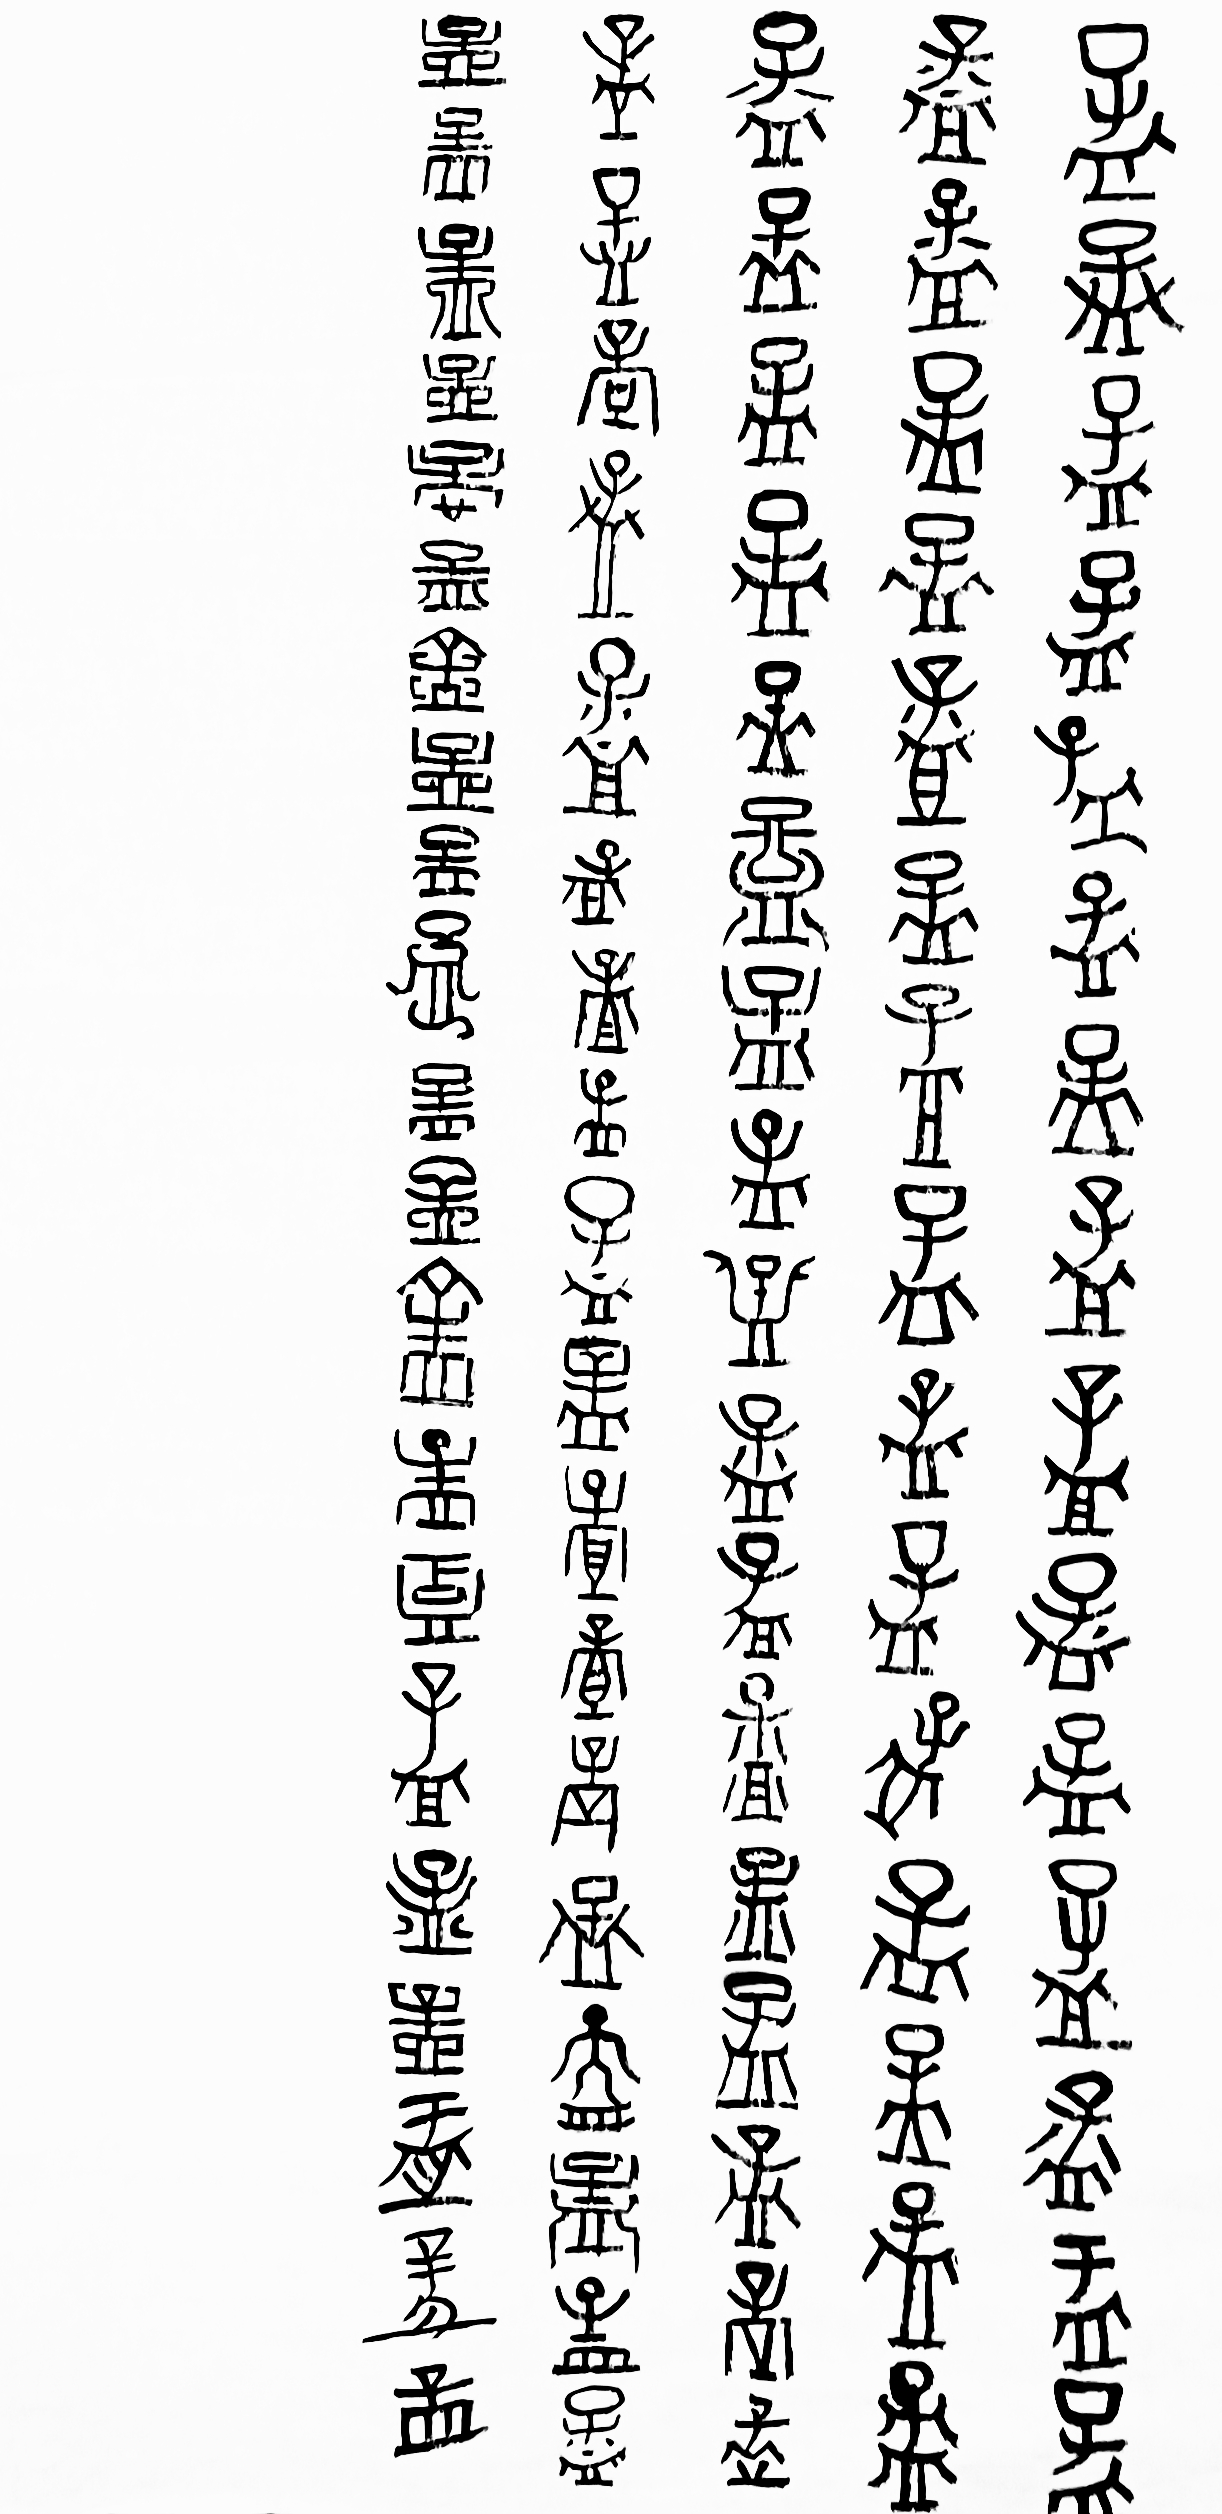 孟孟孟孟孟孟孟孟孟孟孟孟孟孟孟
孟孟孟孟孟孟孟孟孟孟孟孟孟孟孟
孟孟孟孟孟孟孟孟孟孟孟孟孟孟孟孟孟
孟孟孟孟孟孟孟孟孟孟孟孟孟孟孟孟孟孟
孟孟孟孟孟孟孟孟孟孟孟孟孟孟孟孟孟孟孟孟孟